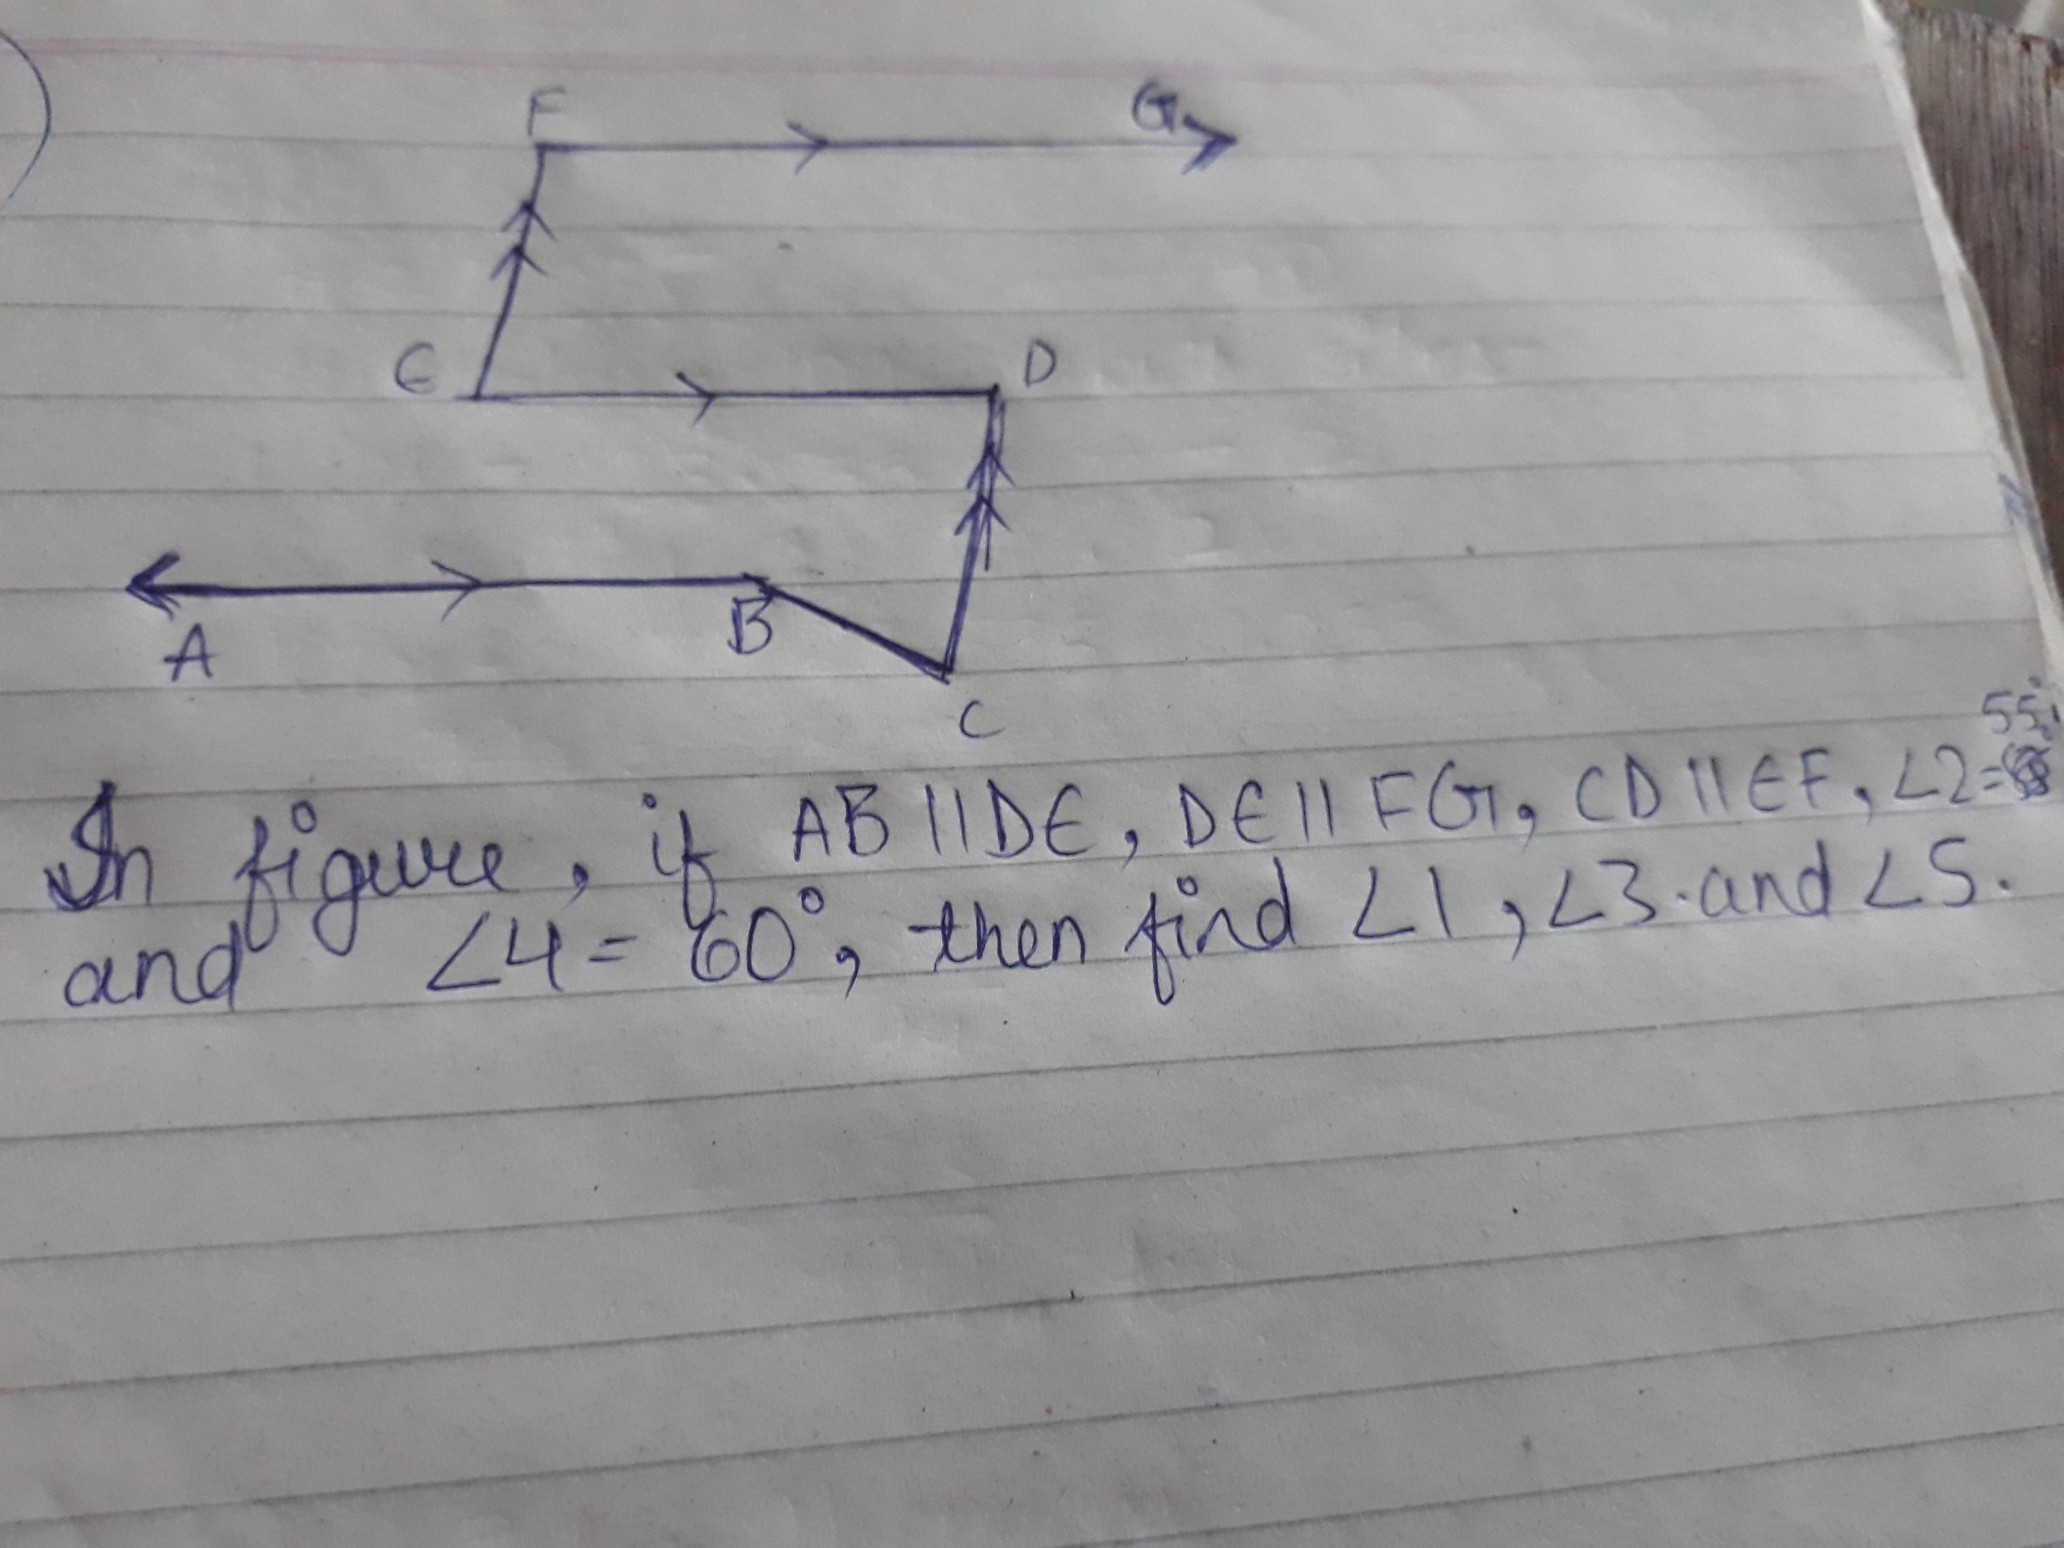 F
G
E
D
B
A
C
55°
In figure, if AB || DE, DE || FG, CD || EF, ∠2=
and ∠4 = 60°, then find ∠1, ∠3 and ∠5.